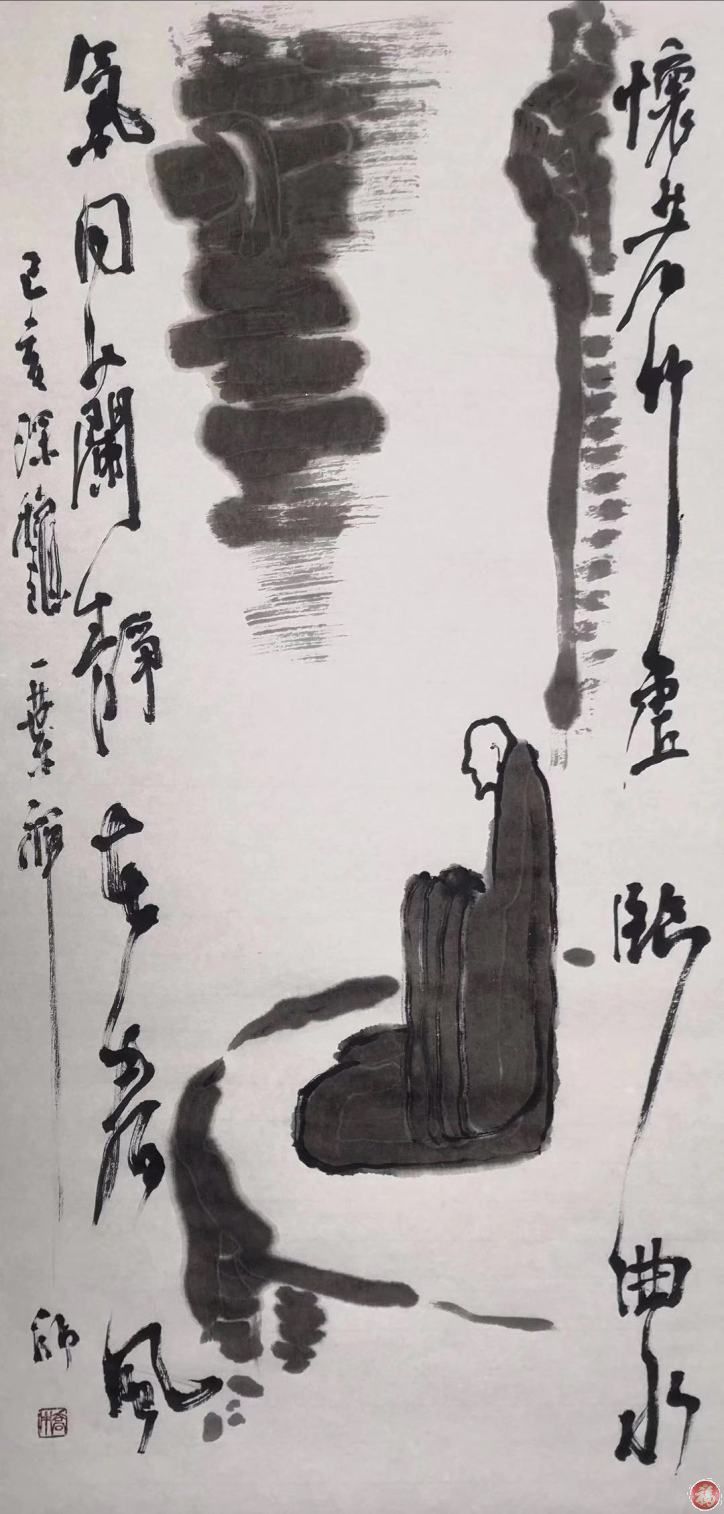 懷若竹虛臨曲水
氣同蘭靜在春風
己亥深龝一葉禪師
福